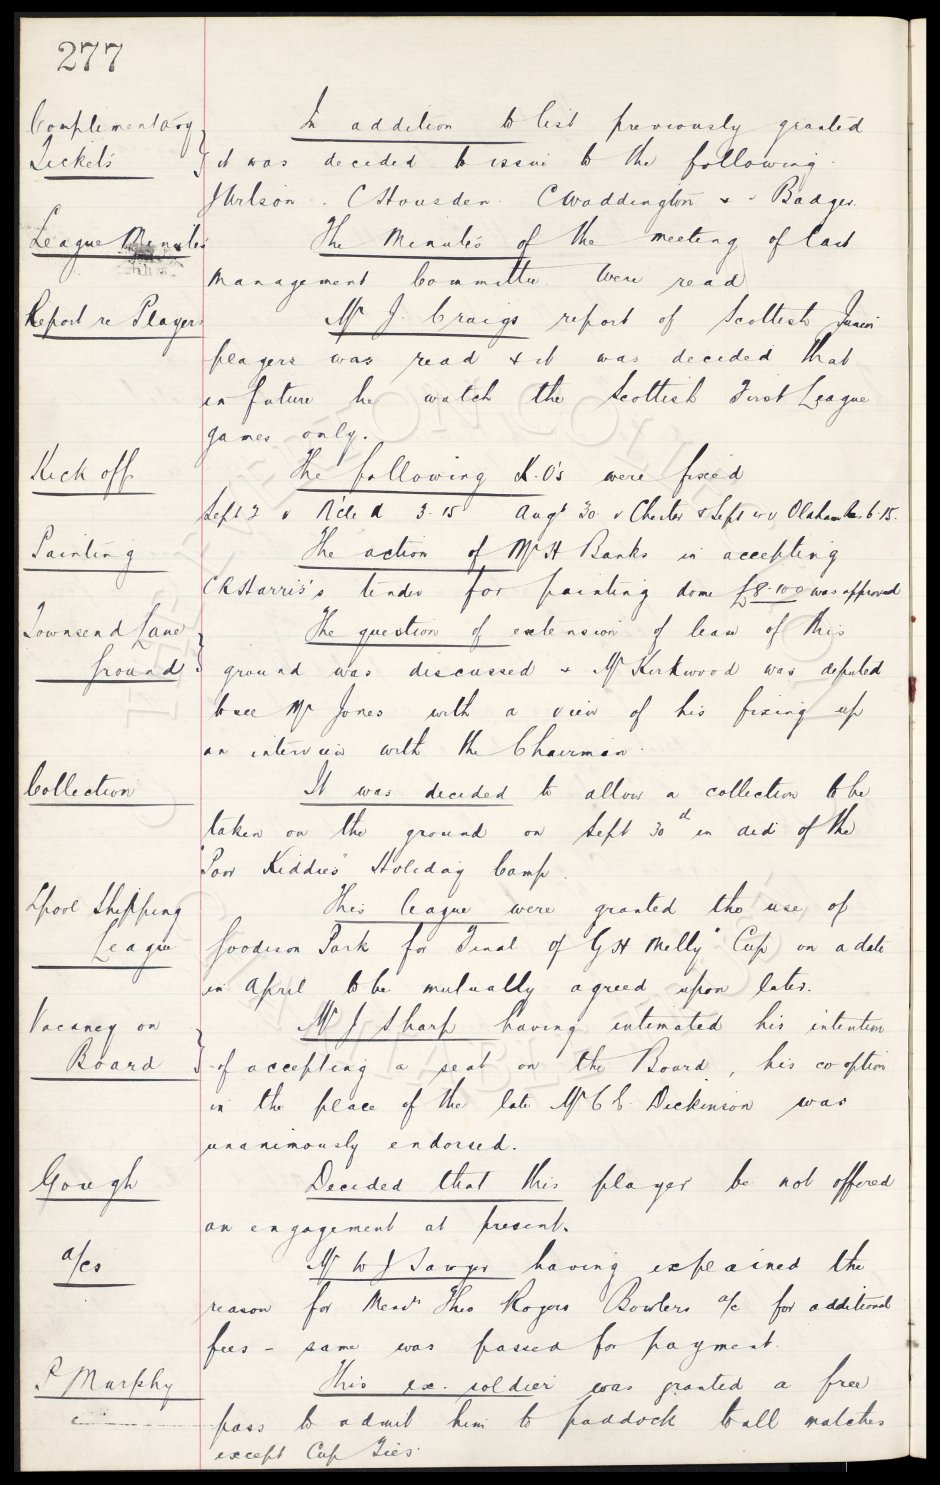 277
Complimentary In addition to list previously granted
Tickets it was decided to issue to the following
J Wilson . C Housden . C Waddington & Badger
League Minutes The Minutes of the meeting of last
Management Committee were read
Report re Players Mr J. Craigs report of Scottish Junior
players was read & it was decided that
in future he watch the Scottish First League
games only.
Kick off The following K.O's were fixed
Sept 2 v N'cle A 3.15 Augt 30 v Chester & Sept v Oldham 6.15.
Painting The action of Mr H Banks in accepting
C R Harris's tender for painting dome £8-10-0 was approved
Townsend Lane The question of extension of lease of this
Ground ground was discussed & Mr Kirkwood was deputed
to see Mr Jones with a view of his fixing up
an interview with the Chairman.
Collection It was decided to allow a collection to be
taken on the ground on Sept 30d in aid of the
"Poor Kiddies" Holiday Camp.
Lpool Shipping This league were granted the use of
League Goodison Park for Final of G H Melly" Cup on a date
in April to be mutually agreed upon later.
Vacancy on Mr J Sharp having intimated his intention
Board of accepting a seat on the Board, his co-option
in the place of the late Mr C E. Dickinson was
unanimously endorsed.
Gough Decided that this player be not offered
an engagement at present.
a/cs Mr W J Sawyer having explained the
reason for Messrs Theo Rogers Bowlers a/c for additional
fees - same was passed for payment.
P Murphy This ex. soldier was granted a free
pass to admit him to paddock to all matches
except Cup Ties.